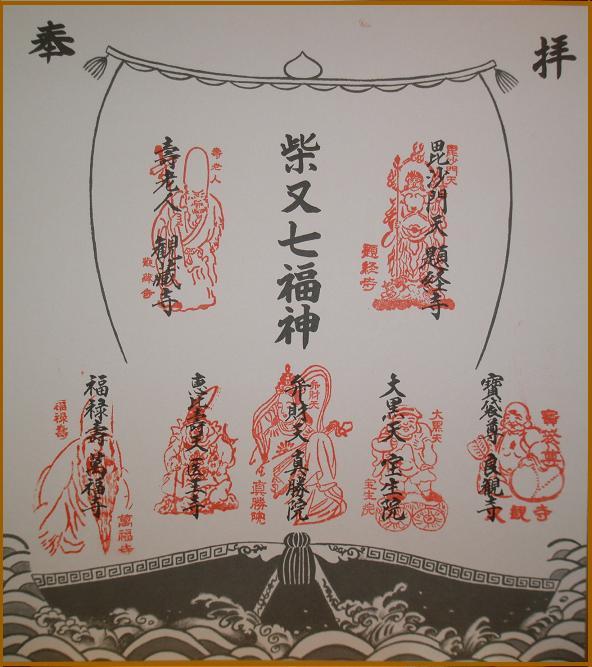 奉拝
柴又七福神
毘沙門天 題経寺
毘沙門天
題経寺
壽老人 観蔵寺
壽老人
観蔵寺
寳袋尊 良観寺
寳袋尊
観寺
大黒天 宝生院
大黒天
宝生院
弁財天 真勝院
弁財天
真勝院
恵比寿天 医王寺
福禄寿 萬福寺
福禄寿
萬福寺